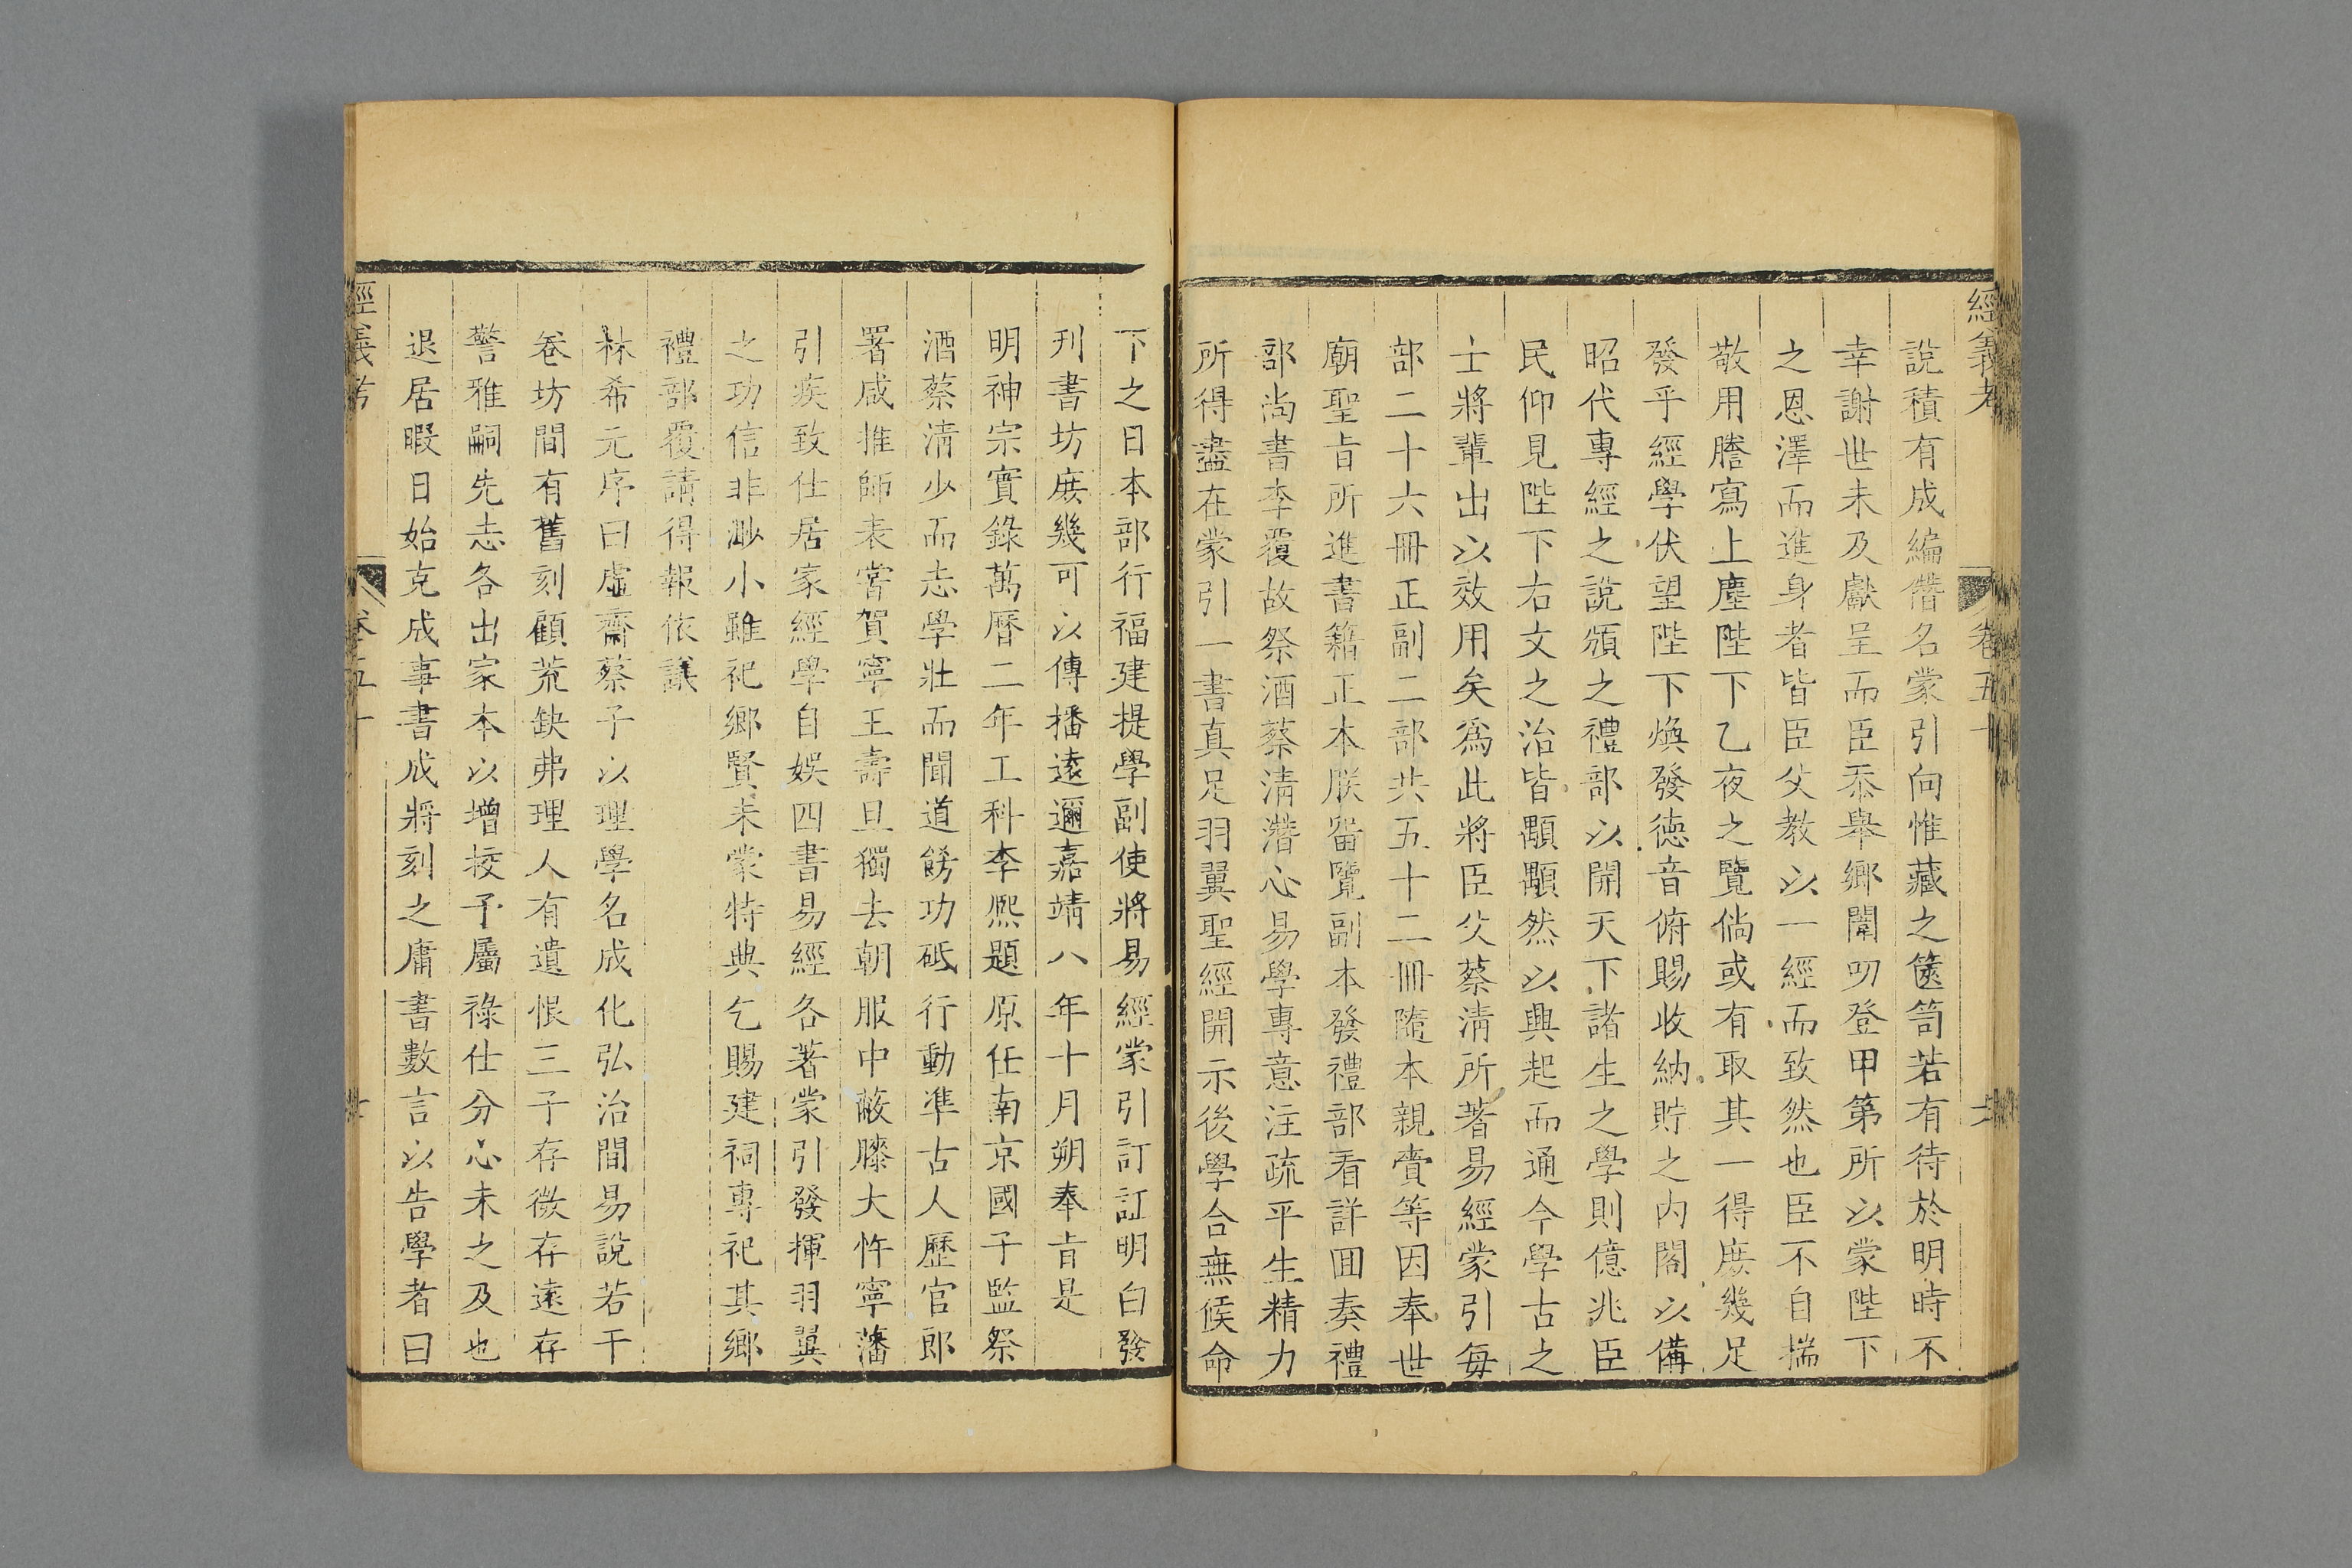 經義考 卷五十
說積有成編僭名蒙引向惟藏之篋笥若有待於明時不
幸謝世未及獻呈而臣忝舉鄉闈叨登甲第所以蒙陛下
之恩澤而進身者皆臣父教以一經而致然也臣不自揣
敬用謄寫上塵陛下乙夜之覽倘或有取其一得庶幾足
發乎經學伏望陛下煥發德音俯賜收納貯之內閣以備
昭代專經之說頒之禮部以開天下諸生之學則億兆臣
民仰見陛下右文之治皆顒顒然以興起而通今學古之
士將輩出以效用矣爲此將臣父蔡淸所著易經蒙引每
部二十六冊正副二部共五十二冊隨本親賫等因奉世
廟聖旨所進書籍正本朕畱覽副本發禮部看詳囬奏禮
部尚書李覆故祭酒蔡淸潛心易學專意注疏平生精力
所得盡在蒙引一書真足羽翼聖經開示後學合無候命
下之日本部行福建提學副使將易經蒙引訂訂明白發
刋書坊庶幾可以傳播遠邇嘉靖八年十月朔奉旨是
明神宗實錄萬曆二年工科李熈題原任南京國子監祭
酒蔡淸少而志學壯而聞道餝功砥行動準古人歷官郎
署咸推師表嘗賀寧王壽旦獨去朝服中蔽膝大忤寧藩
引疾致仕居家經學自娛四書易經各著蒙引發揮羽翼
之功信非渺小雖祀鄉賢未蒙特典乞賜建祠專祀其鄉
禮部覆請得報依議
林希元序曰虛齋蔡子以理學名成化弘治間易說若干
卷坊間有舊刻顧荒缺弗理人有遺恨三子存微存遠存
警雅嗣先志各出家本以增挍予屬祿仕分心未之及也
退居暇日始克成事書成將刻之庸書數言以告學者曰
經義考 卷五十